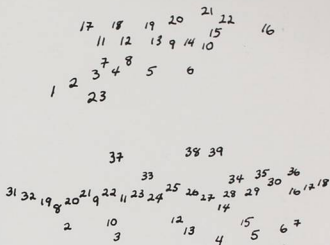 21
17 18 19 20 22
11 12 13 9 14 15 10 16
7 8
3 4 5 6
1 2
23
37 38 39
33 34 35 36
31 32 19 8 20 21 9 22 11 23 24 25 26 27 28 29 30 16 17 18
14
2 10 12 15 7
3 13 4 5 6